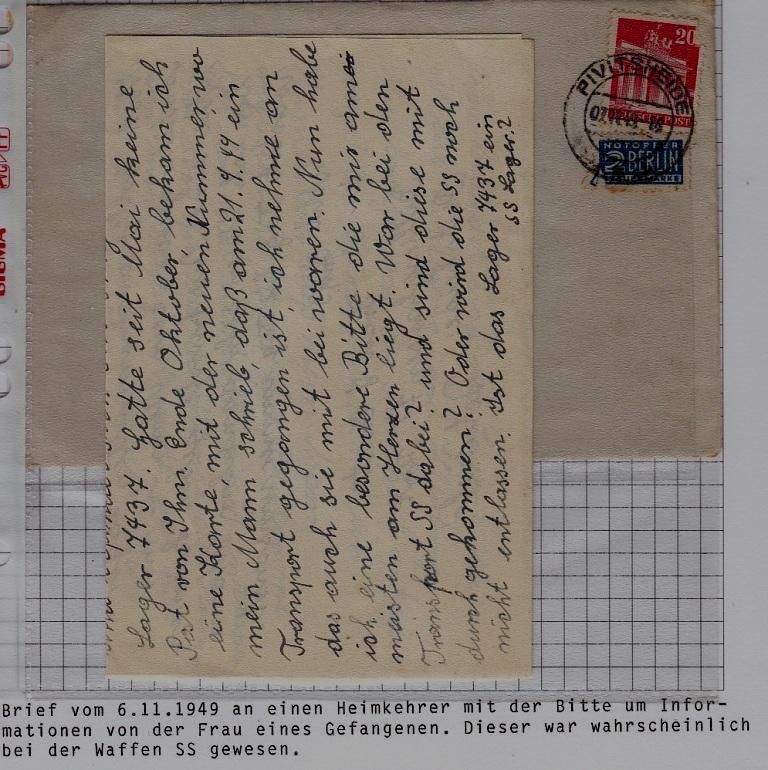 Lager 7437. Hatte seit Mai keine
Post von Ihm. Ende Oktober, bekam ich
eine Karte, mit der neuen Nummer, wo
mein Mann schrieb, daß am 21.9.49 ein
Transport gegangen ist, ich nehme an
das auch sie mit bei waren. Nun habe
ich eine besondere Bitte die mir am
meisten am Herzen liegt. War bei den
Transport SS dabei? und sind diese mit
durch gekommen? Oder wird die SS noch
nicht entlassen. Ist das Lager 7437 ein
SS Lager?
20
PIVITSHEIDE
NOTOPFER
2 BERLIN
STEUERMARKE
SIGMA
Brief vom 6.11.1949 an einen Heimkehrer mit der Bitte um Infor-
mationen von der Frau eines Gefangenen. Dieser war wahrscheinlich
bei der Waffen SS gewesen.